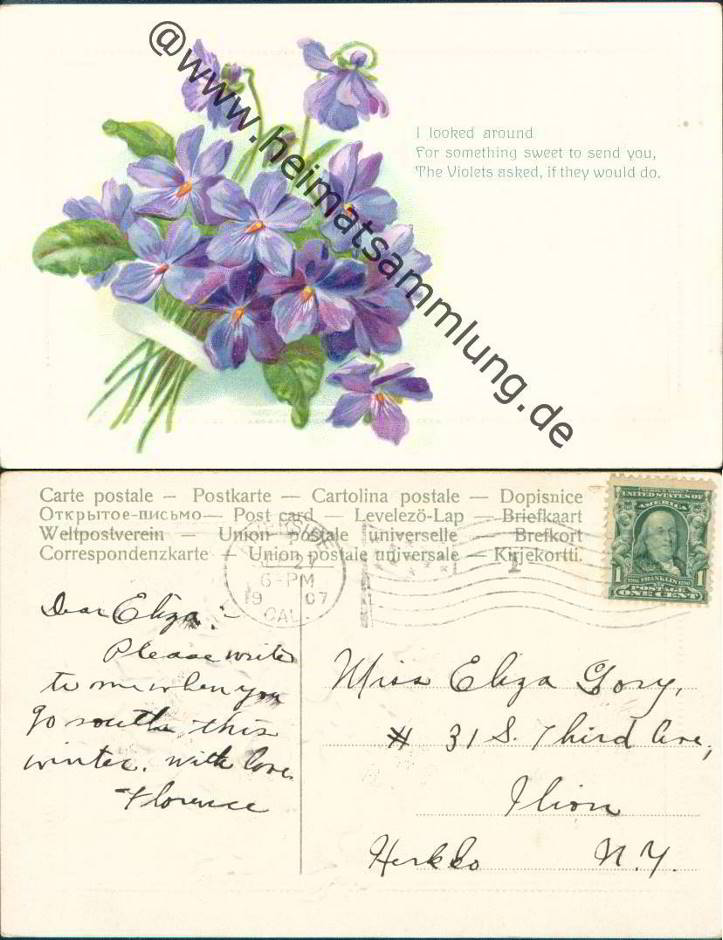 @www.heimatsammlung.de
I looked around
For something sweet to send you,
The Violets asked, if they would do.
Carte postale — Postkarte — Cartolina postale — Dopisnice
Открытое-письмо — Post card — Levelezö-Lap — Briefkaart
Weltpostverein — Union postale universelle — Brefkort
Correspondenzkarte — Union postale universale — Kirjekortti.
27
6-PM
19 07
CAL.
UNITED STATES OF
AMERICA
1 FRANKLIN 1
POSTAGE
ONE CENT
Dear Eliza:-
Please write
to me when you
go south this
winter. With love
Florence
Miss Eliza Gory,
# 31 S. Third Ave,
Ilion
Herk Co N.Y.